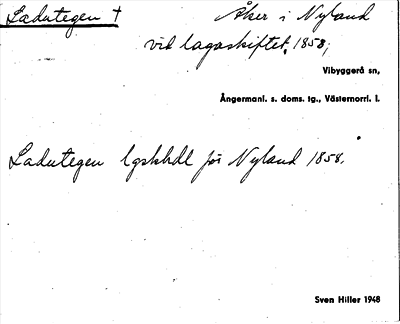 Ladutegen † Åker i Nyland
vid lagaskiftet, 1858;
Vibyggerå sn,
Ångermanl. s. doms. tg., Västernorrl. l.
Ladutegen lgskhdl för Nyland 1858.
Sven Hiller 1948